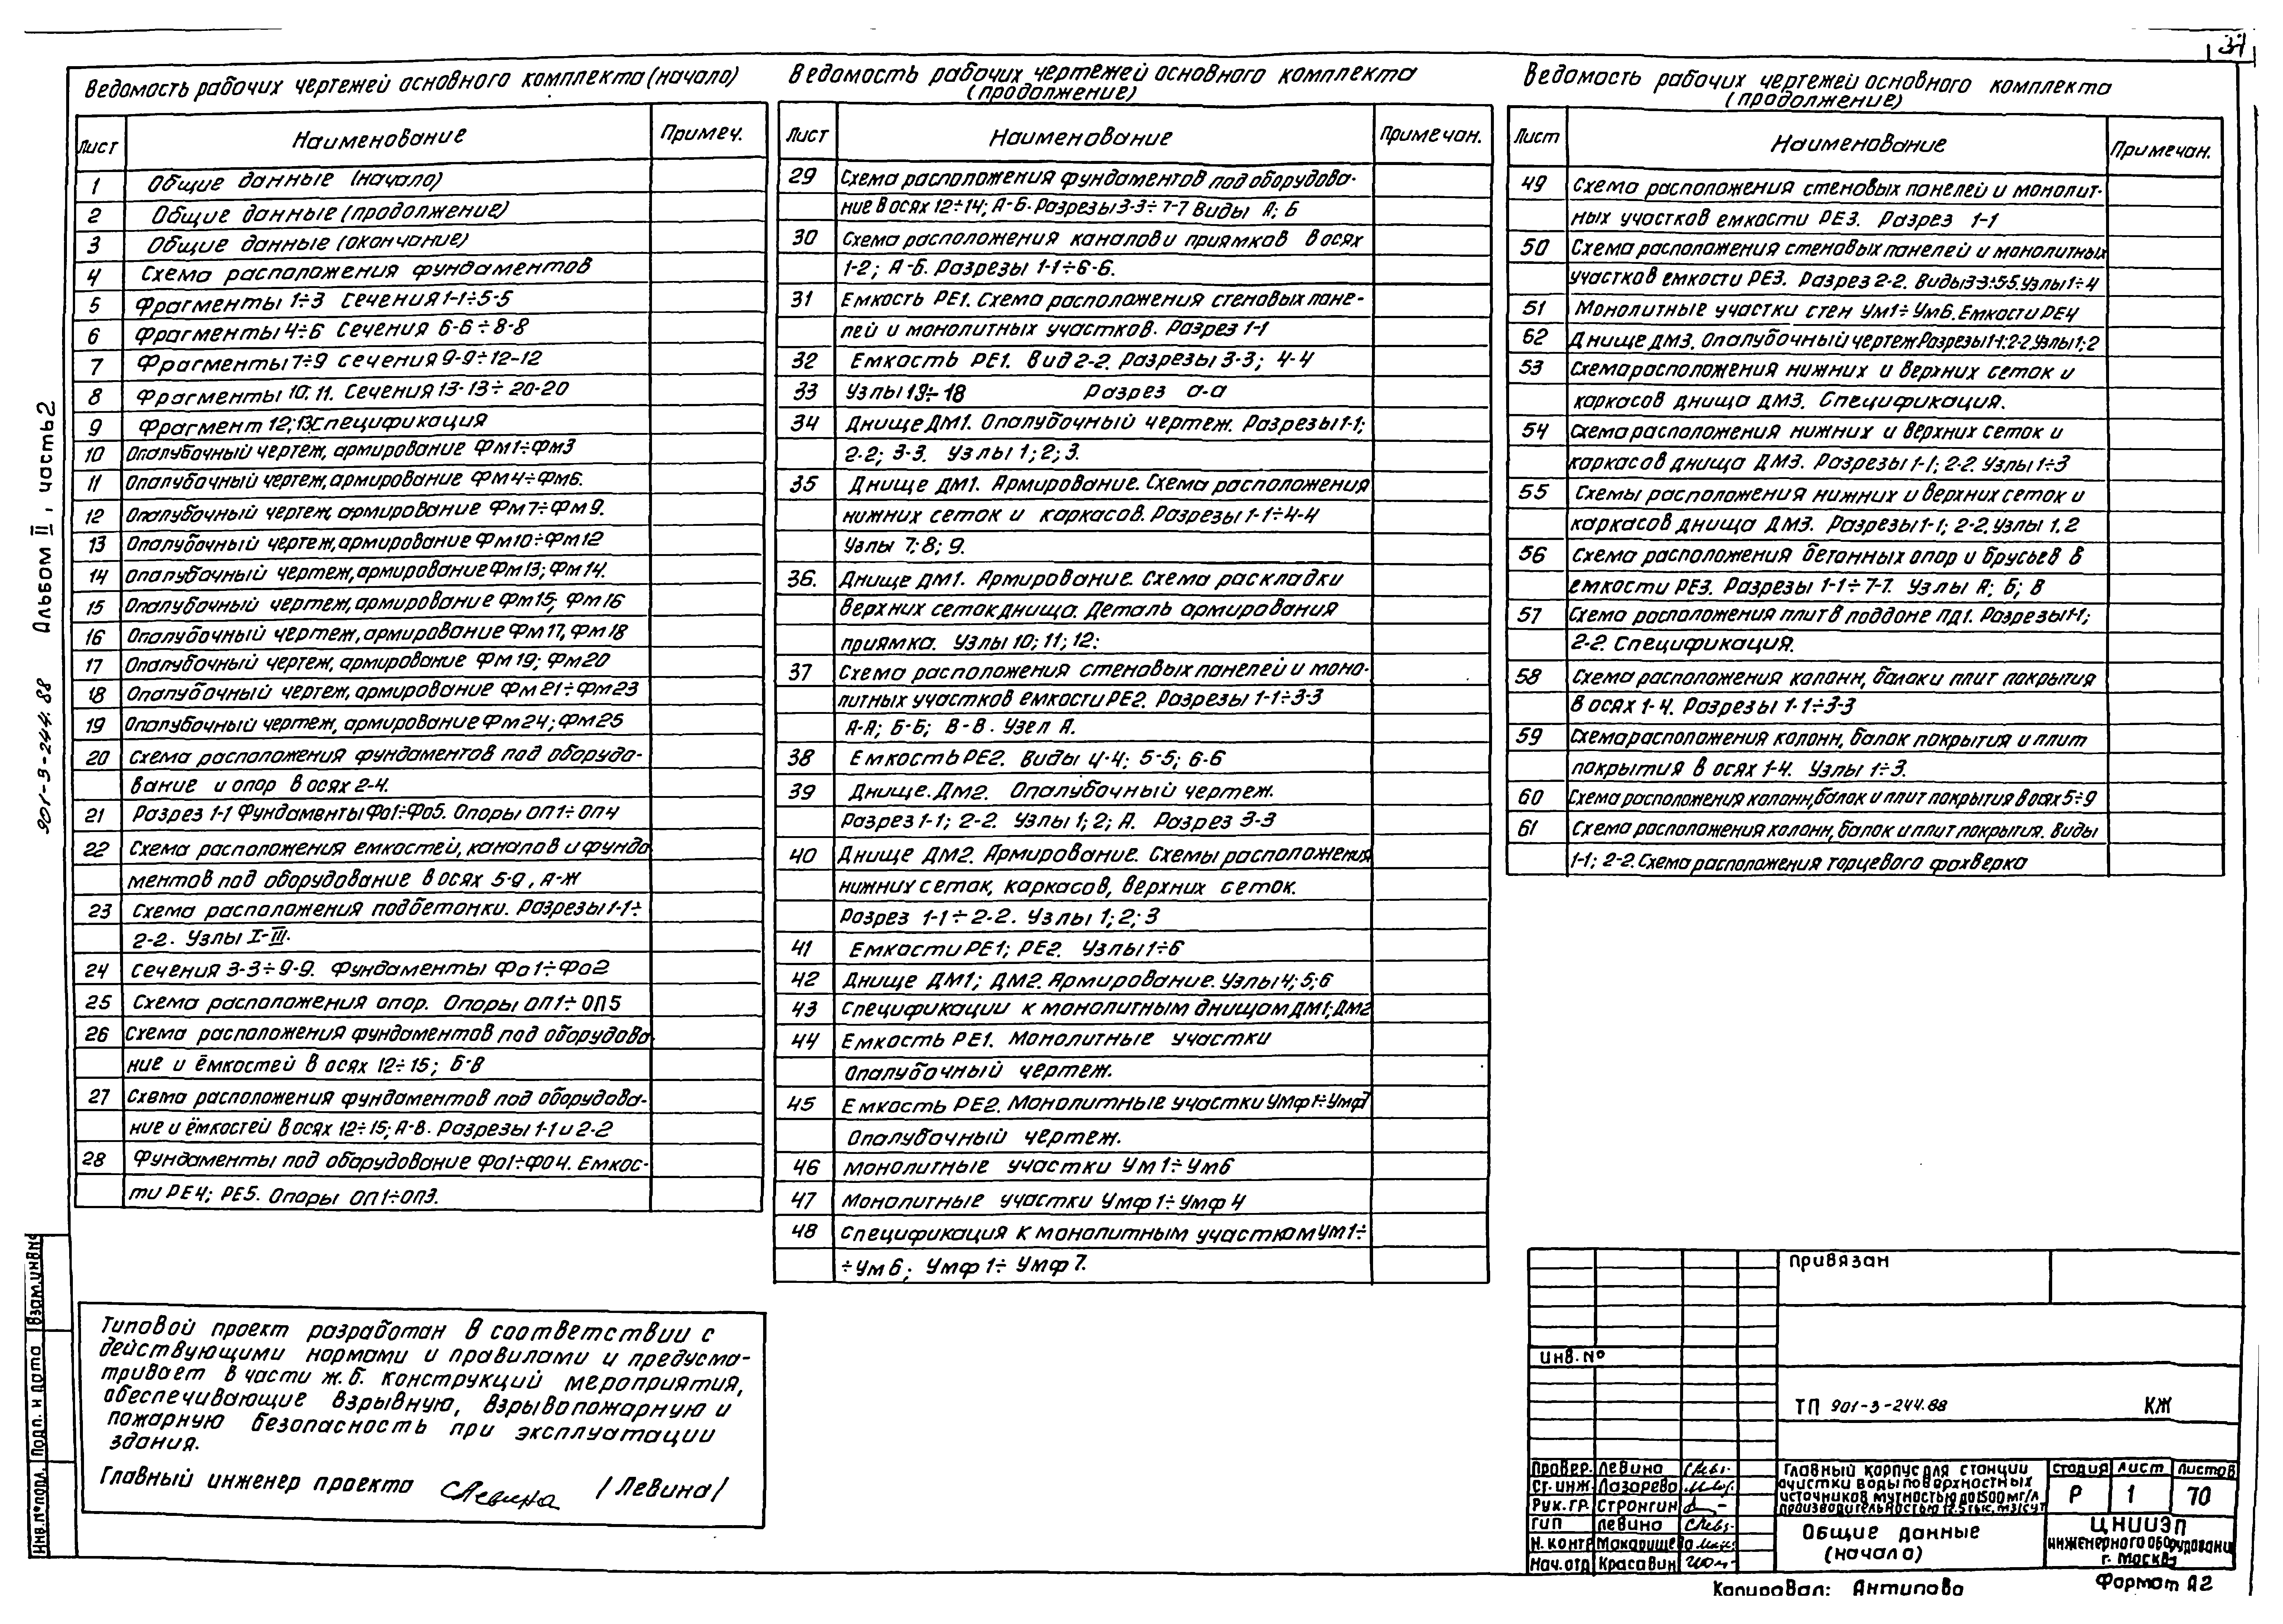 31
Альбом II, часть 2
901-3-244.88
Ведомость рабочих чертежей основного комплекта (начало)
Лист Наименование Примеч.
1 Общие данные (начало)
2 Общие данные (продолжение)
3 Общие данные (окончание)
4 Схема расположения фундаментов
5 Фрагменты 1÷3 Сечения 1-1÷5-5
6 Фрагменты 4÷6 Сечения 6-6÷8-8
7 Фрагменты 7÷9 сечения 9-9÷12-12
8 Фрагменты 10; 11. Сечения 13-13÷20-20
9 Фрагмент 12;13.Спецификация
10 Опалубочный чертеж, армирование Фм1÷Фм3
11 Опалубочный чертеж, армирование Фм4÷Фм6.
12 Опалубочный чертеж, армирование Фм7÷Фм9.
13 Опалубочный чертеж, армирование Фм10÷Фм12
14 Опалубочный чертеж, армирование Фм13; Фм14.
15 Опалубочный чертеж, армирование Фм15; Фм16
16 Опалубочный чертеж, армирование Фм17, Фм18
17 Опалубочный чертеж, армирование Фм19; Фм20
18 Опалубочный чертеж, армирование Фм21÷Фм23
19 Опалубочный чертеж, армирование Фм24; Фм25
20 Схема расположения фундаментов под оборудо-
вание и опор в осях 2-4.
21 Разрез 1-1 Фундаменты Фо1÷Фо5. Опоры ОП1÷ОП4
22 Схема расположения емкостей, каналов и фунда
ментов под оборудование в осях 5-9, А-Ж
23 Схема расположения подбетонки. Разрезы 1-1÷
2-2. Узлы I-III.
24 Сечения 3-3÷9-9. Фундаменты Фо1÷Фо2
25 Схема расположения опор. Опоры ОП1÷ОП5
26 Схема расположения фундаментов под оборудова
ние и ёмкостей в осях 12÷15; Б-В
27 Схема расположения фундаментов под оборудова-
ние и ёмкостей в осях 12÷15; А-В. Разрезы 1-1 и 2-2
28 Фундаменты под оборудование Фо1÷Фо4. Емкос-
ти РЕ4; РЕ5. Опоры ОП1÷ОП3.
Ведомость рабочих чертежей основного комплекта
(продолжение)
Лист Наименование Примечан.
29 Схема расположения фундаментов под оборудова-
ние в осях 12÷14; А-Б. Разрезы 3-3÷7-7 Виды А; Б
30 Схема расположения каналов и приямков в осях
1-2; А-Б. Разрезы 1-1÷6-6.
31 Емкость РЕ1. Схема расположения стеновых пане-
лей и монолитных участков. Разрез 1-1
32 Емкость РЕ1. Вид 2-2. Разрезы 3-3; 4-4
33 Узлы 13÷18 Разрез а-а
34 Днище ДМ1. Опалубочный чертеж. Разрезы 1-1;
2-2; 3-3. Узлы 1; 2; 3.
35 Днище ДМ1. Армирование. Схема расположения
нижних сеток и каркасов. Разрезы 1-1÷4-4
Узлы 7; 8; 9.
36. Днище ДМ1. Армирование. Схема раскладки
верхних сеток днища. Деталь армирования
приямка. Узлы 10; 11; 12:
37 Схема расположения стеновых панелей и моно-
литных участков емкости РЕ2. Разрезы 1-1÷3-3
А-А; Б-Б; В-В. Узел А.
38 Емкость РЕ2. Виды 4-4; 5-5; 6-6
39 Днище. ДМ2. Опалубочный чертеж.
Разрез 1-1; 2-2. Узлы 1; 2; А. Разрез 3-3
40 Днище ДМ2. Армирование. Схемы расположения
нижних сеток, каркасов, верхних сеток.
Разрез 1-1÷2-2. Узлы 1; 2; 3
41 Емкости РЕ1; РЕ2. Узлы 1÷6
42 Днище ДМ1; ДМ2. Армирование. Узлы 4; 5; 6
43 Спецификации к монолитным днищам ДМ1; ДМ2
44 Емкость РЕ1. Монолитные участки
Опалубочный чертеж.
45 Емкость РЕ2. Монолитные участки Умф1÷Умф7
Опалубочный чертеж.
46 Монолитные участки Ум1÷Ум6
47 Монолитные участки Умф1÷Умф4
48 Спецификация к монолитным участком Ум1÷
÷Ум6; Умф1÷Умф7.
Ведомость рабочих чертежей основного комплекта
(продолжение)
Лист Наименование Примечан.
49 Схема расположения стеновых панелей и монолит-
ных участков емкости РЕ3. Разрез 1-1
50 Схема расположения стеновых панелей и монолитных
участков емкости РЕ3. Разрез 2-2. Виды 3-3÷5-5. Узлы 1÷4
51 Монолитные участки стен Ум1÷Ум6. Емкости РЕ4
62 Днище ДМ3. Опалубочный чертеж Разрезы 1-1; 2-2 Узлы 1; 2
53 Схема расположения нижних и верхних сеток и
каркасов днища ДМ3. Спецификация.
54 Схема расположения нижних и верхних сеток и
каркасов днища ДМ3. Разрезы 1-1; 2-2 Узлы 1÷3
55 Схемы расположения нижних и верхних сеток и
каркасов днища ДМ3. Разрезы 1-1; 2-2. Узлы 1, 2
56 Схема расположения бетонных опор и брусьев в
емкости РЕ3. Разрезы 1-1÷7-7. Узлы А; Б; В
57 Схема расположения плит в поддоне ПД1. Разрезы 1-1;
2-2. Спецификация.
58 Схема расположения колонн, балок и плит покрытия
в осях 1-4. Разрезы 1-1÷3-3
59 Схема расположения колонн, балок покрытия и плит
покрытия в осях 1-4. Узлы 1÷3.
60 Схема расположения колонн, балок и плит покрытия в осях 5÷9
61 Схема расположения колонн, балок и плит покрытия. Виды
1-1; 2-2. Схема расположения торцевого фахверка
Типовой проект разработан в соответствии с
действующими нормами и правилами и предусма-
тривает в части ж.б. конструкций мероприятия,
обеспечивающие взрывную, взрывопожарную и
пожарную безопасность при эксплуатации
здания.
Главный инженер проекта СЛевина /Левина/
Взам.инв№
Подп. и дата
Инв.№подл.
Привязан
Инв. №
ТП 901-3-244.88 КЖ
Провер. Левина
Ст. инж. Лазарева
Рук. гр. Стронгин
ГИП Левина
Н. контр Макаришева
Нач. отд Красавин
Главный корпус для станции
очистки воды поверхностных
источников мутностью до 1500 мг/л
производительностью 12.5 тыс. м3/сут
Стадия Лист Листов
Р 1 70
Общие данные
(начало)
ЦНИИЭП
инженерного оборудования
г. Москва
Копировал: Антипова
Формат А2